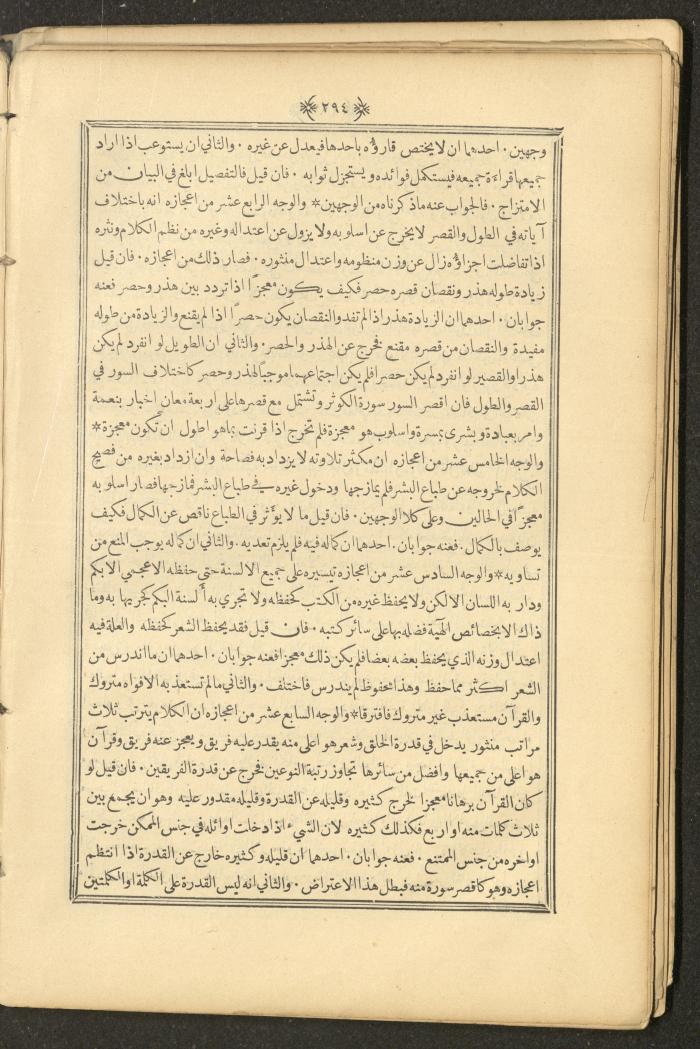 ٢٩٤
وجهين ۰ احدهما ان لا يختص قارؤه باحدها فيعدل عن غيره ۰ والثاني ان يستوعب اذا اراد
جميعها قراءة جميعه فيستكمل فوائده ويستجزل ثوابه ۰ فان قيل فالتفصيل ابلغ في البيان من
الامتزاج ۰ فالجواب عنه ماذكرناه من الوجهين * والوجه الرابع عشر من اعجازه انه باختلاف
آياته في الطول والقصر لايخرج عن اسلوبه ولا يزول عن اعتداله وغيره من نظم الكلام ونثره
اذا تفاضلت اجزاؤه زال عن وزن منظومه واعتدال منثوره ۰ فصار ذلك من اعجازه ۰ فان قيل
زيادة طوله هذر ونقصان قصره حصر فكيف يكون معجزًا اذا تردد بين هذر وحصر فعنه
جوابان ۰ احدهما ان الزيادة هذر اذا لم تفد والنقصان يكون حصرًا اذا لم يقنع والزيادة من طوله
مفيدة والنقصان من قصره مقنع فخرج عن الهذر والحصر ۰ والثاني ان الطويل لو انفرد لم يكن
هذرا والقصير لو انفرد لم يكن حصرا فلم يكن اجتماعهما موجباً لهذر وحصر كاختلاف السور في
القصر والطول فان اقصر السور سورة الكوثر وتشتمل مع قصرها على اربعة معان اخبار بنعمة
وامر بعبادة وبشرى بمسرة واسلوب هو معجزة فلم تخرج اذا قرنت بما هو اطول ان تكون معجزة *
والوجه الخامس عشر من اعجازه ان مكثر تلاوته لا يزداد به فصاحة وان ازداد بغيره من فصيح
الكلام لخروجه عن طباع البشر فلم يمازجها ودخول غيره في طباع البشر فمازجها فصار اسلوبه
معجزًا في الحالين وعلى كلا الوجهين ۰ فان قيل ما لا يؤثر في الطباع ناقص عن الكمال فكيف
يوصف بالكمال ۰ فعنه جوابان ۰ احدهما ان كماله فيه فلم يلزم تعديه ۰ والثاني ان كماله يوجب المنع من
تساويه * والوجه السادس عشر من اعجازه تيسيره على جميع الالسنة حتى حفظه الاعجمي الابكم
ودار به اللسان الالكن ولا يحفظ غيره من الكتب كحفظه ولا تجري به ألسنة البكم كجريها به وما
ذاك الا بخصائص الهية فضله بها على سائر كتبه ۰ فان قيل فقد يحفظ الشعر كحفظه والعلة فيه
اعتدال وزنه الذي يحفظ بعضه بعضا فلم يكن ذلك معجزا فعنه جوابان ۰ احدهما ان ما اندرس من
الشعر اكثر مما حفظ وهذا محفوظ لم يندرس فاختلف ۰ والثاني ما لم تستعذبه الافواه متروك
والقرآن مستعذب غير متروك فافترقا * والوجه السابع عشر من اعجازه ان الكلام يترتب ثلاث
مراتب منثور يدخل في قدرة الخلق وشعر هو اعلى منه يقدر عليه فريق ويعجز عنه فريق وقرآن
هو اعلى من جميعها وافضل من سائرها تجاوز رتبة النوعين فخرج عن قدرة الفريقين ۰ فان قيل لو
كان القرآن برهانا معجزا لخرج كثيره وقليله عن القدرة وقليله مقدور عليه وهو ان يجمع بين
ثلاث كلمات منه او اربع فكذلك كثيره لان الشيء اذا دخلت اوائله في جنس الممكن خرجت
اواخره من جنس الممتنع ۰ فعنه جوابان ۰ احدهما ان قليله وكثيره خارج عن القدرة اذا انتظم
اعجازه وهو كاقصر سورة منه فبطل هذا الاعتراض ۰ والثاني انه ليس القدرة على الكلمة او الكلمتين